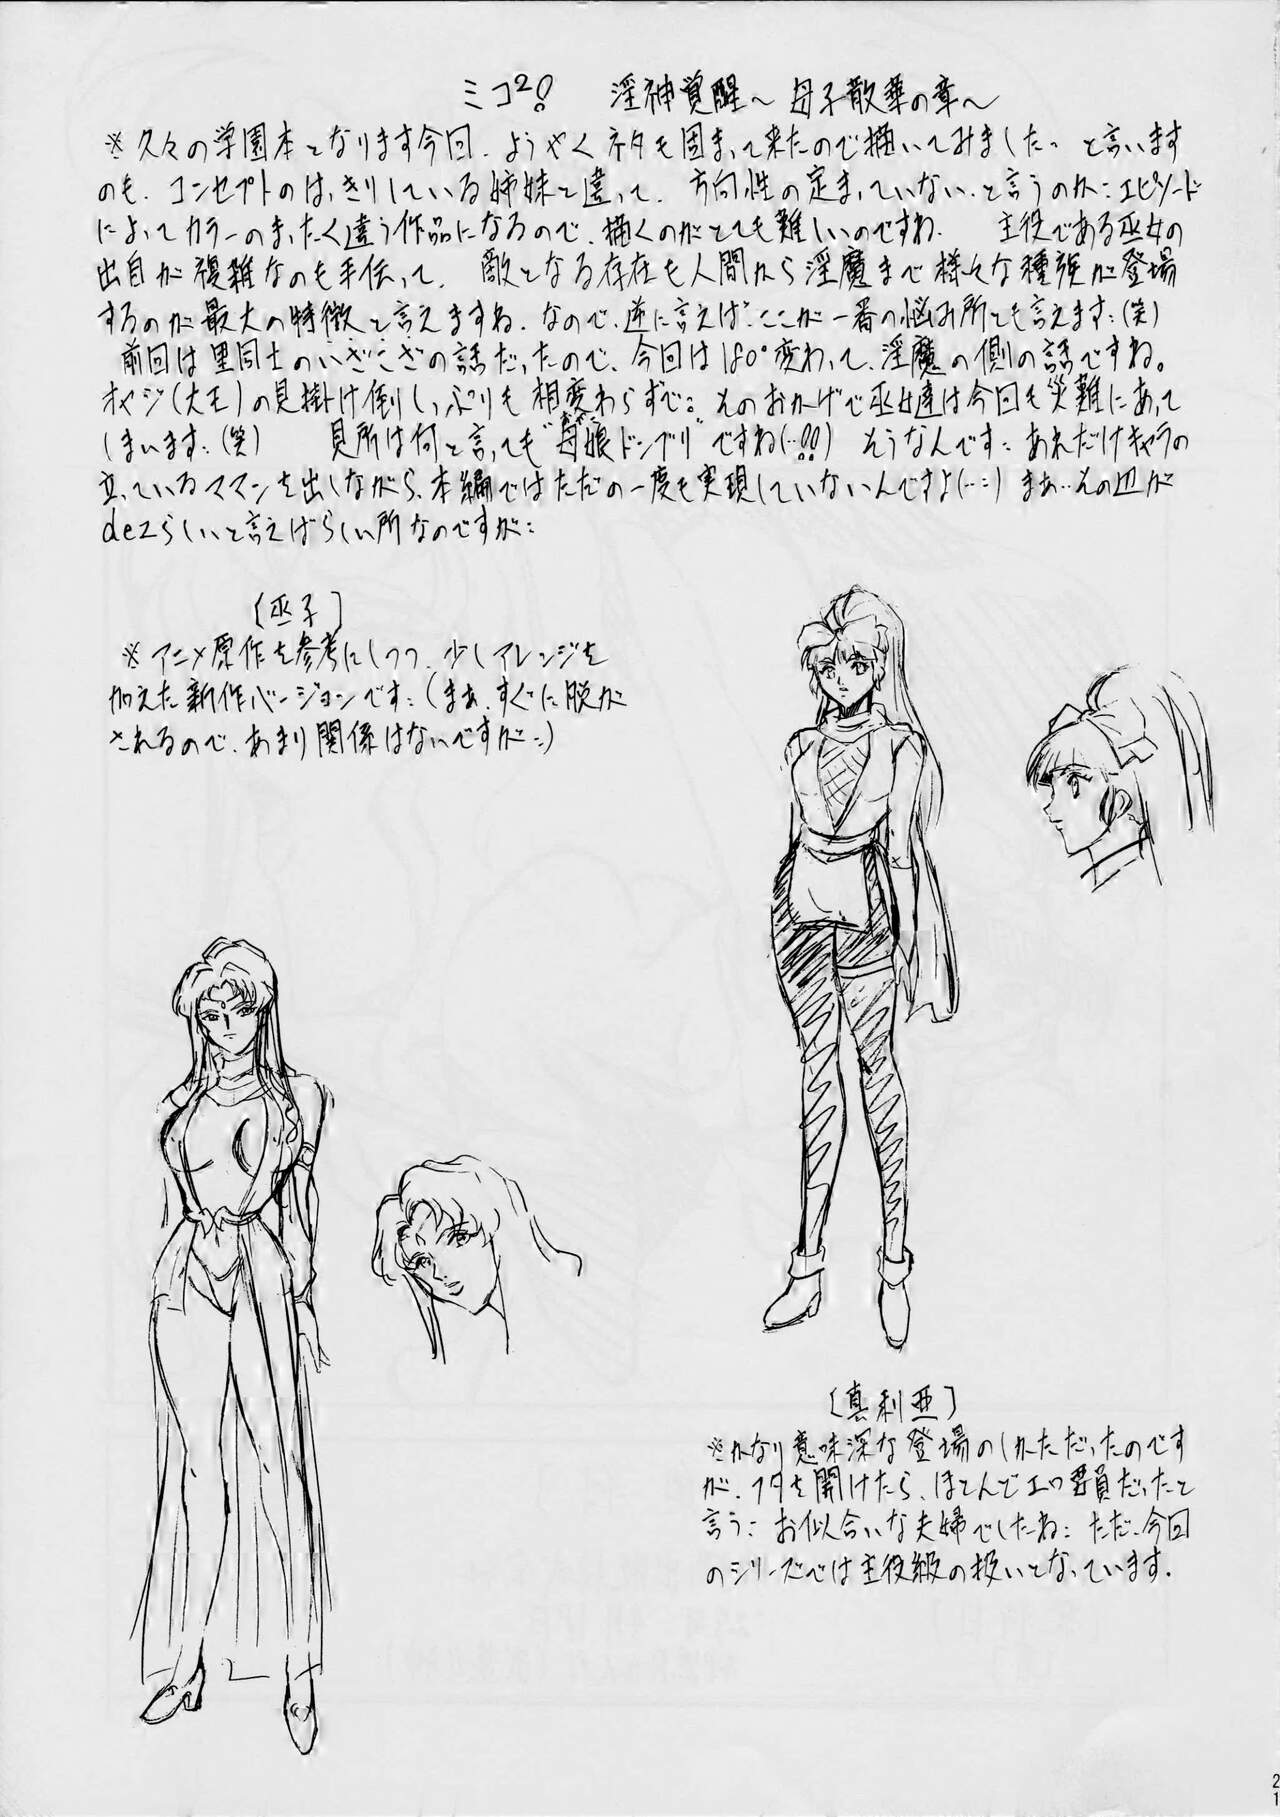 ミコ²! 淫神覚醒～母子散華の章～
※久々の学園本となります今回、ようやくネタも固まって来たので描いてみました。と言います
のも、コンセプトのはっきりしている姉妹と違って、方向性の定まっていない、と言うのか…エピソード
によってカラーのまったく違う作品になるので、描くのがとても難しいのですね。 主役である巫女の
出自が複雑なのも手伝って、敵となる存在も人間から淫魔まで様々な種族が登場
するのが最大の特徴と言えますね。なので、逆に言えば、ここが一番の悩み所とも言えます…(笑)
前回は里同士のいざこざの話だったので、今回は180°変わって、淫魔の側の話ですね。
オヤジ(大王)の見掛け倒しっぷりも相変わらずで…そのおかげで巫女達は今回も災難にあって
しまいます…(笑) 見所は何と言っても“母娘ドンブリ”ですね(…!!) そうなんです…あれだけキャラの
立っているママンを出しながら、本編ではただの一度も実現していないんですよ(…) まぁ…その辺が
dezらしいと言えばらしい所なのですが…
[巫子]
※アニメ原作を参考にしつつ、少しアレンジを
加えた新作バージョンです…(まぁ、すぐに脱が
されるので、あまり関係はないですが…)
[真利亜]
※かなり意味深な登場のしかただったのです
が、フタを開けたら、ほとんどエロ要員だったと
言う…お似合いな夫婦でしたね…ただ、今回
のシリーズでは主役級の扱いとなっています。
21